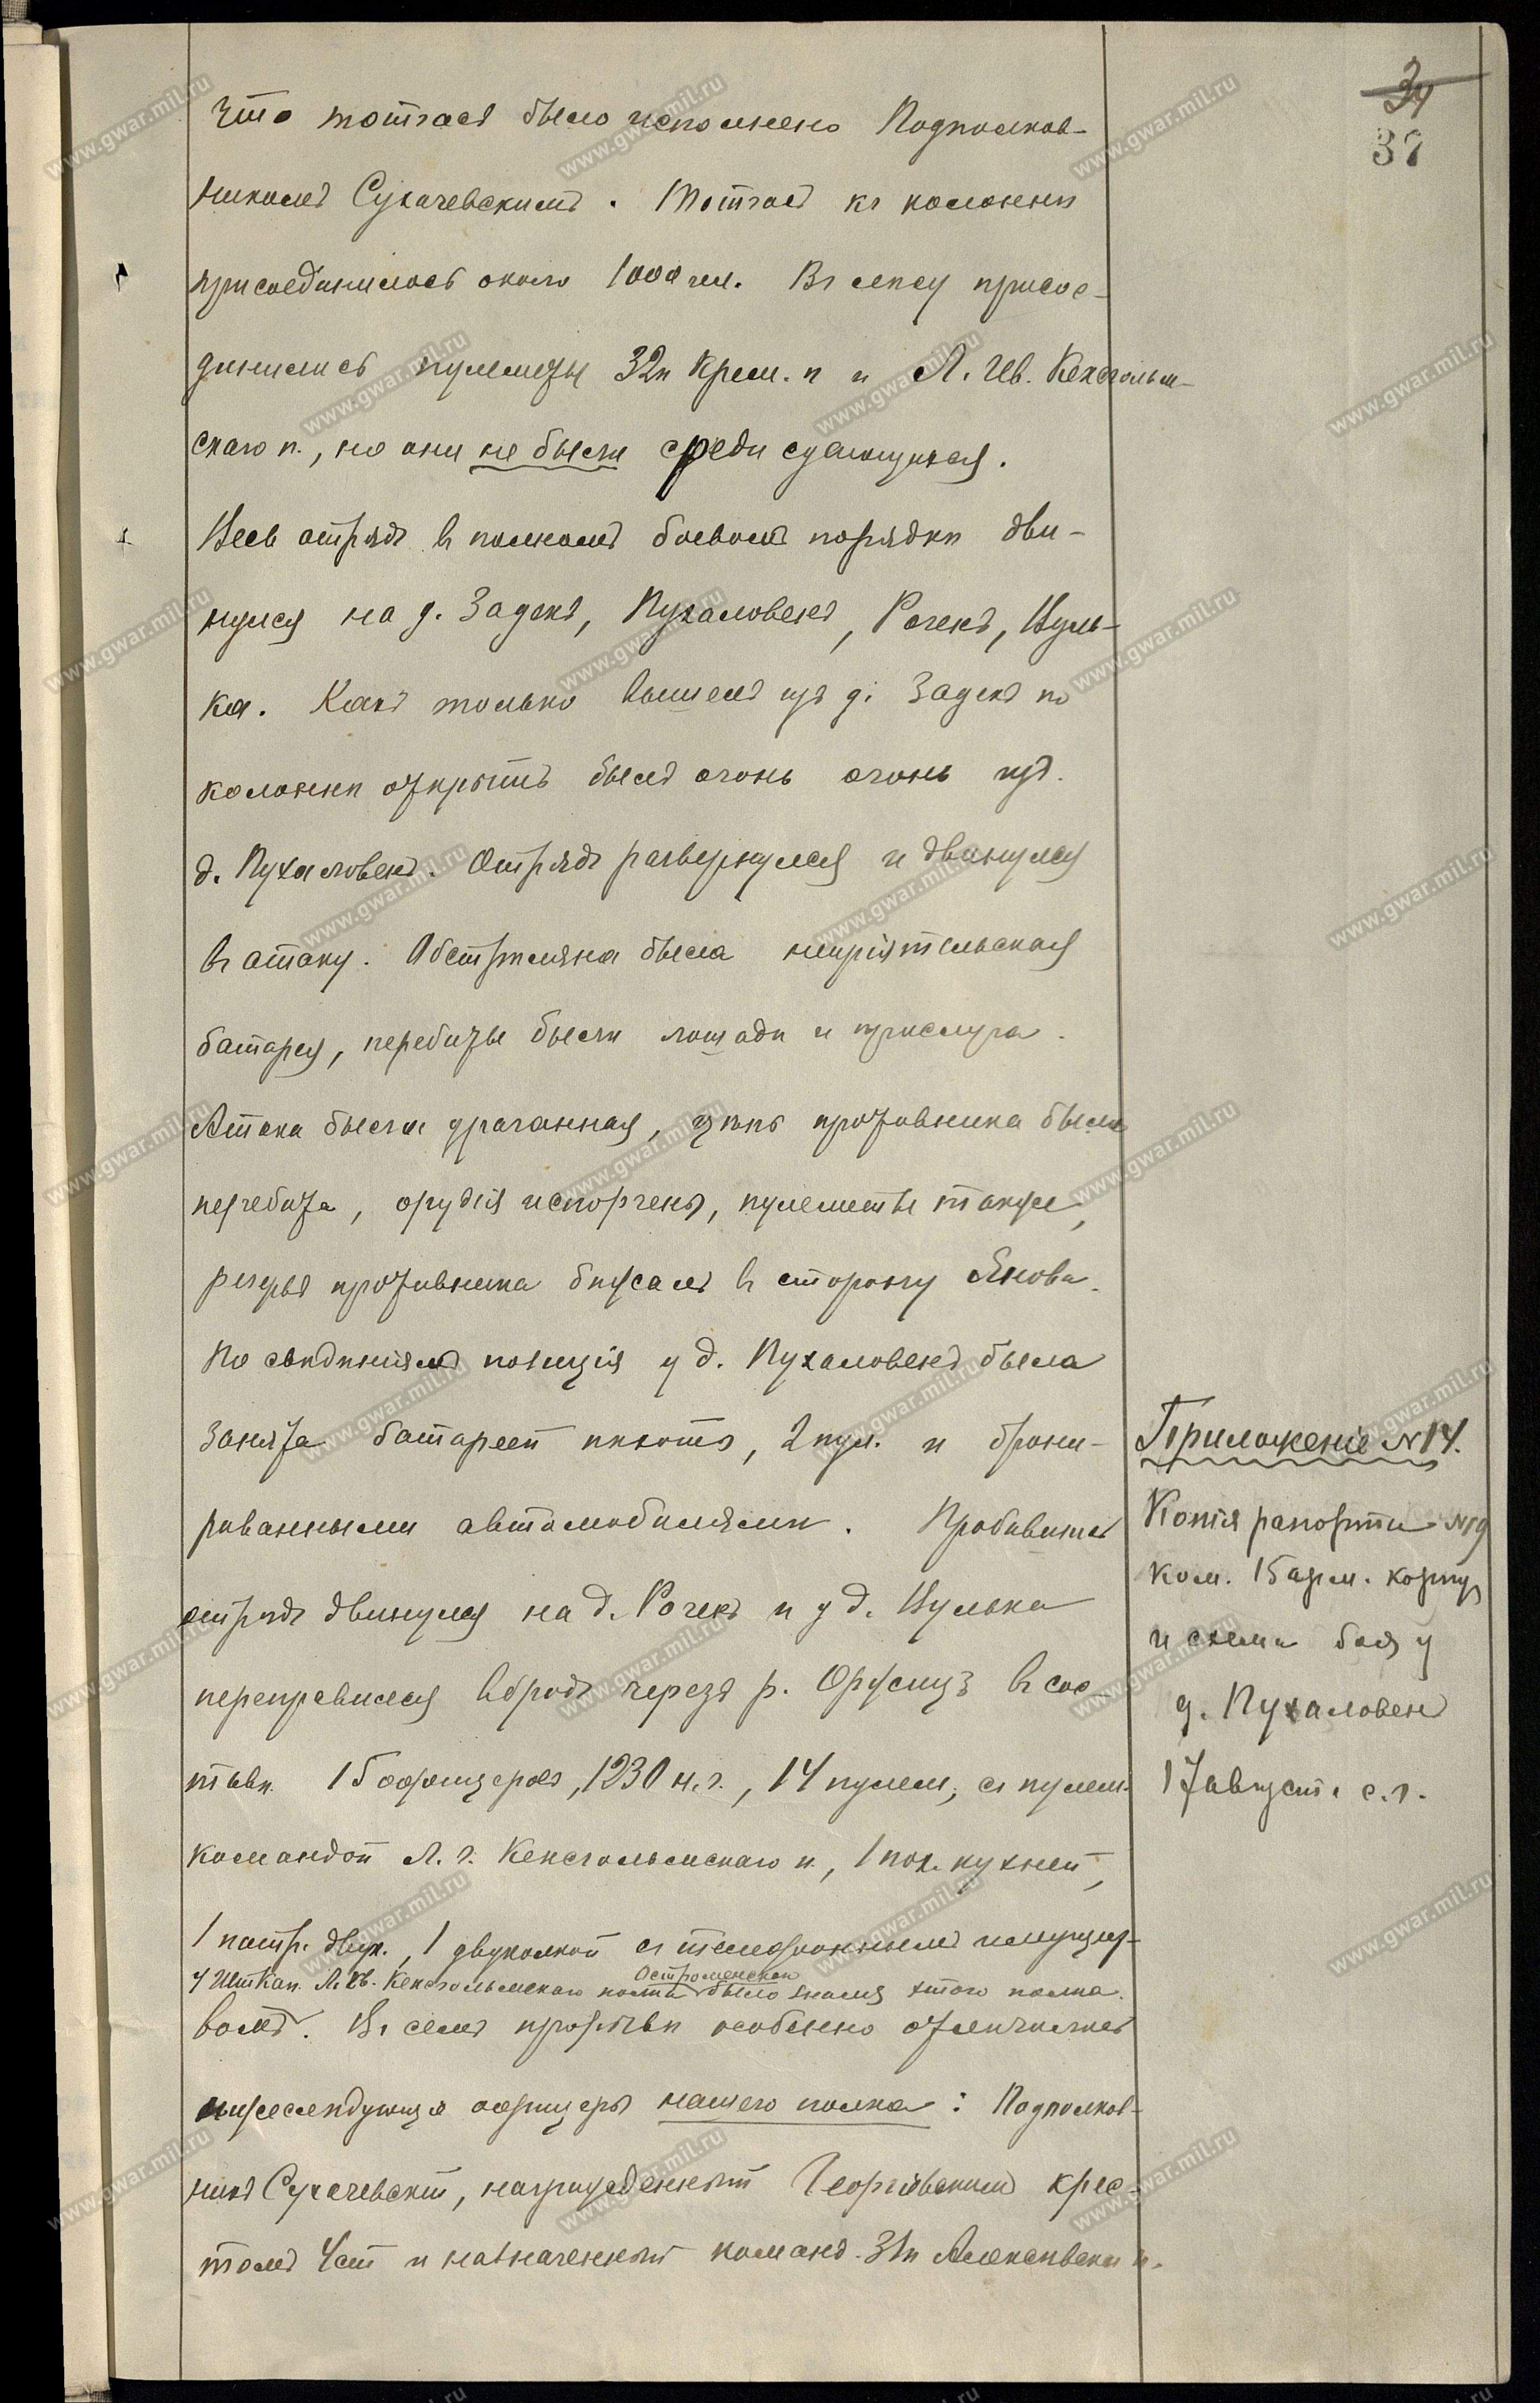 34
37
что тотчасъ было исполнено Подполков-
никомъ Сухачевскимъ. Тотчасъ къ колоннѣ
присоединилось около 1000 чел. Въ лѣсу присое-
динились пулеметы 32п Крем. п и Л. Гв. Кексгольм-
скаго п., но они не были среди сдающихся.
Весь отрядъ въ полномъ боевомъ порядкѣ дви-
нулся на д. Задекъ, Пухаловенъ, Рогекъ, Вуль-
ка. Какъ только вышелъ изъ д. Задекъ по
колоннѣ открытъ былъ огонь огонь изъ
д. Пухаловенъ. Отрядъ развернулся и двинулся
въ атаку. Обстрѣляна была непріятельская
батарея, перебиты были лошади и прислуга.
Атака была удачная, цѣпь противника была
перебита, орудія испорчены, пулеметы также,
резервъ противника бѣжалъ въ сторону Янова.
По свѣдѣніямъ позиція у д. Пухаловенъ была
занята батареей пѣхото, 2 пул. и брони-
рованными автомобилями. Пробившись
отрядъ двинулся на д. Рогекъ и у д. Вулька
переправился вбродъ черезъ р. Оржицъ въ сос-
тавѣ 15 офицеровъ, 1230 н.ч., 14 пулем., съ пулем.
командой Л. г. Кексгольмскаго п., 1 пох. кухней,
1 патр. двук., 1 двуколкой съ телефоннымъ имущест-
у Шт Кап. Л. Гв. Кексгольмскаго полка было знамя этого полка.
вомъ. Въ семъ прорывѣ особенно отличились
нижеслѣдующіе офицеры нашего полка: Подполков-
никъ Сухачевскій, награжденный Георгіевскимъ крес-
томъ 4ст и назначенный команд. 31п Алексѣевск п.
Приложеніе №14.
Копія рапорта №19
ком. 15 арм. корпус
и схема боя у
д. Пухаловенъ
17 август. с.г.
www.gwar.mil.ru